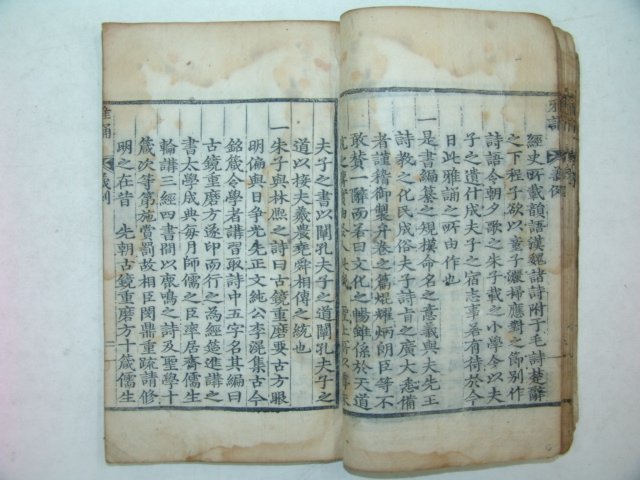 經史所載韻語漢魏諸詩附于毛詩楚辭
之下程子欲以童子灑掃應對之節別作
詩語令朝夕歌之朱子載之小學今以夫
子之遺什成夫子之宿志事若有待於今
日此雅誦之所由作也
一是書編纂之規模命名之意義與夫先王
詩教之化民成俗夫子詩旨之廣大悉備
者謹稽御製弁卷之篇焜耀炳朗臣等不
敢贅一辭而若曰文化之暢雖係於天道
夫子之書以闡孔夫子之道闡孔夫子之
道以接夫羲農堯舜相傳之統也
一朱子與林熈之詩曰古鏡重磨要古方眼
明偏與日爭光先正文純公李滉集古今
銘箴令學者講習取詩中五字名其編曰
古鏡重磨方逐印而行之為經筵進講之
書太學成典每月師儒之臣率居齋儒生
輪講三經四書間以齊鳴之詩及聖學十
箴次等第施賞罰故相臣閔鼎重疏請修
明之在昔 先朝古鏡重磨方十箴儒生
雅誦
義例
二